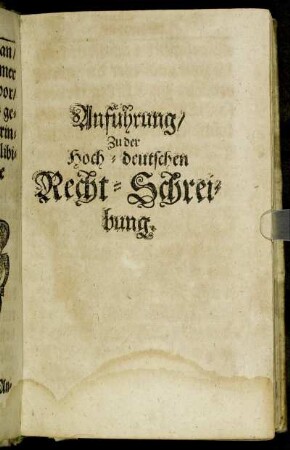 an/
mer
vor/
ge-
rin-
libi-
e
Anführung/
Zu der
Hoch-deutschen
Recht-Schrei-
bung.